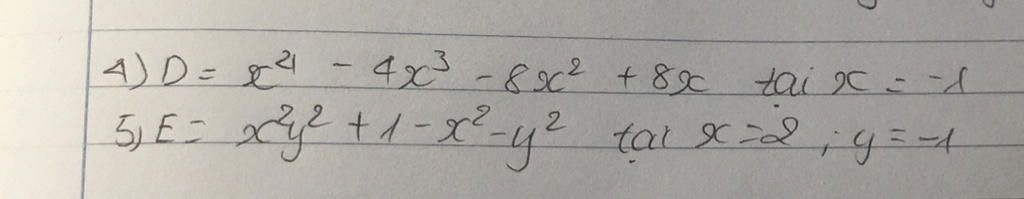 4) D = x⁴ - 4x³ - 8x² + 8x tại x = -1
5) E = x²y² + 1 - x² - y² tại x = 2 ; y = -1